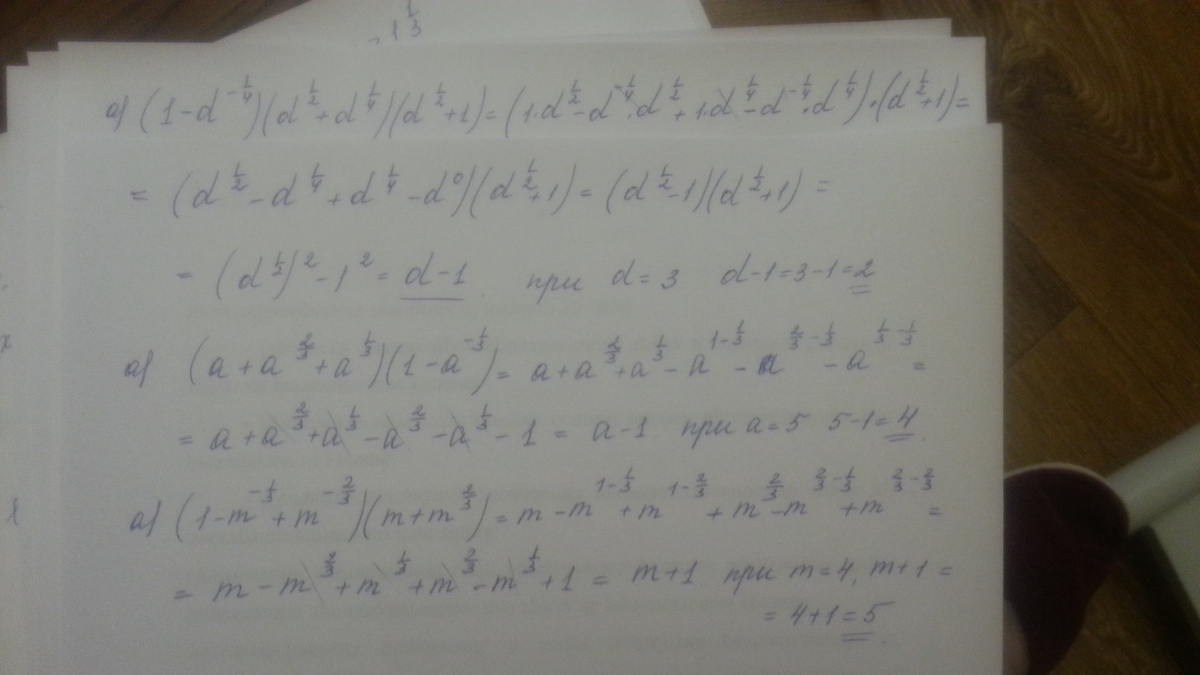 1/3
а) (1-d^{-1/4})(d^{1/2}+d^{1/4})(d^{1/2}+1)=(1·d^{1/2}-d^{-1/4}·d^{1/2}+1·d^{1/4}-d^{-1/4}·d^{1/4})·(d^{1/2}+1)=
= (d^{1/2}-d^{1/4}+d^{1/4}-d^0)(d^{1/2}+1)=(d^{1/2}-1)(d^{1/2}+1)=
= (d^{1/2})^2-1^2=d-1 при d=3 d-1=3-1=2
а) (a+a^{2/3}+a^{1/3})(1-a^{-1/3})=a+a^{2/3}+a^{1/3}-a^{1-1/3}-a^{2/3-1/3}-a^{1/3-1/3}=
= a+a^{2/3}+a^{1/3}-a^{2/3}-a^{1/3}-1=a-1 при a=5 5-1=4.
а) (1-m^{-1/3}+m^{-2/3})(m+m^{2/3})=m-m^{1-1/3}+m^{1-2/3}+m^{2/3}-m^{2/3-1/3}+m^{2/3-2/3}=
= m-m^{2/3}+m^{1/3}+m^{2/3}-m^{1/3}+1=m+1 при m=4, m+1=
= 4+1=5.